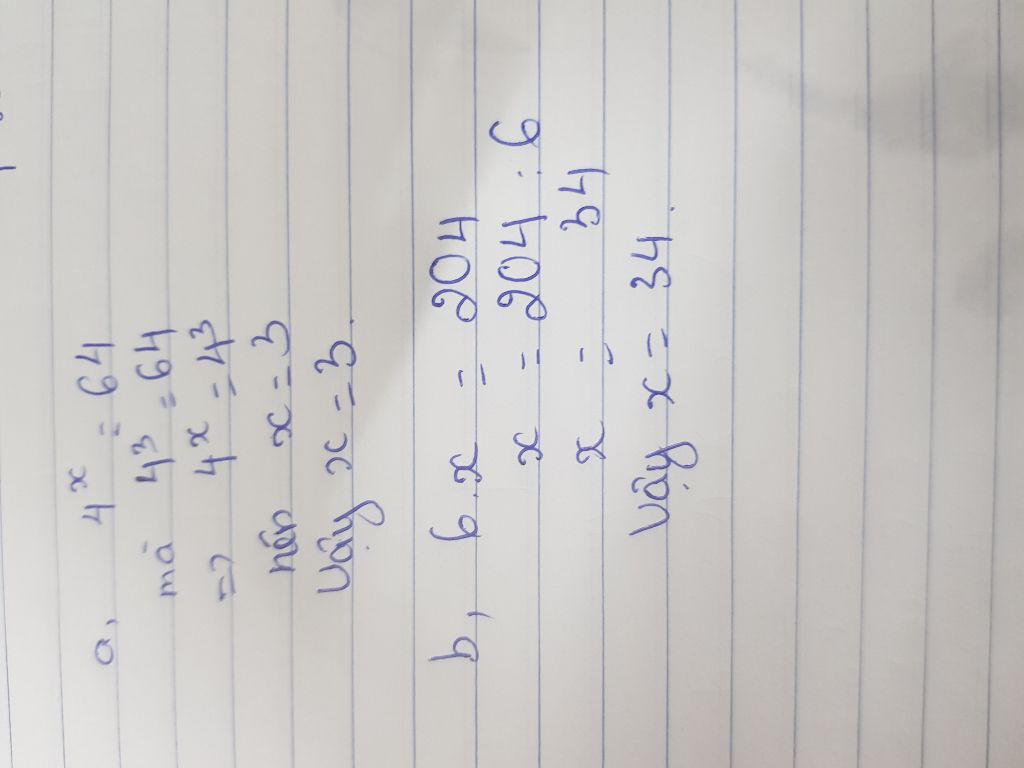 a, 4ˣ = 64
mà 4³ = 64
=> 4ˣ = 4³
nên x = 3
Vậy x = 3.
b, 6.x = 204
x = 204 : 6
x = 34
Vậy x = 34.